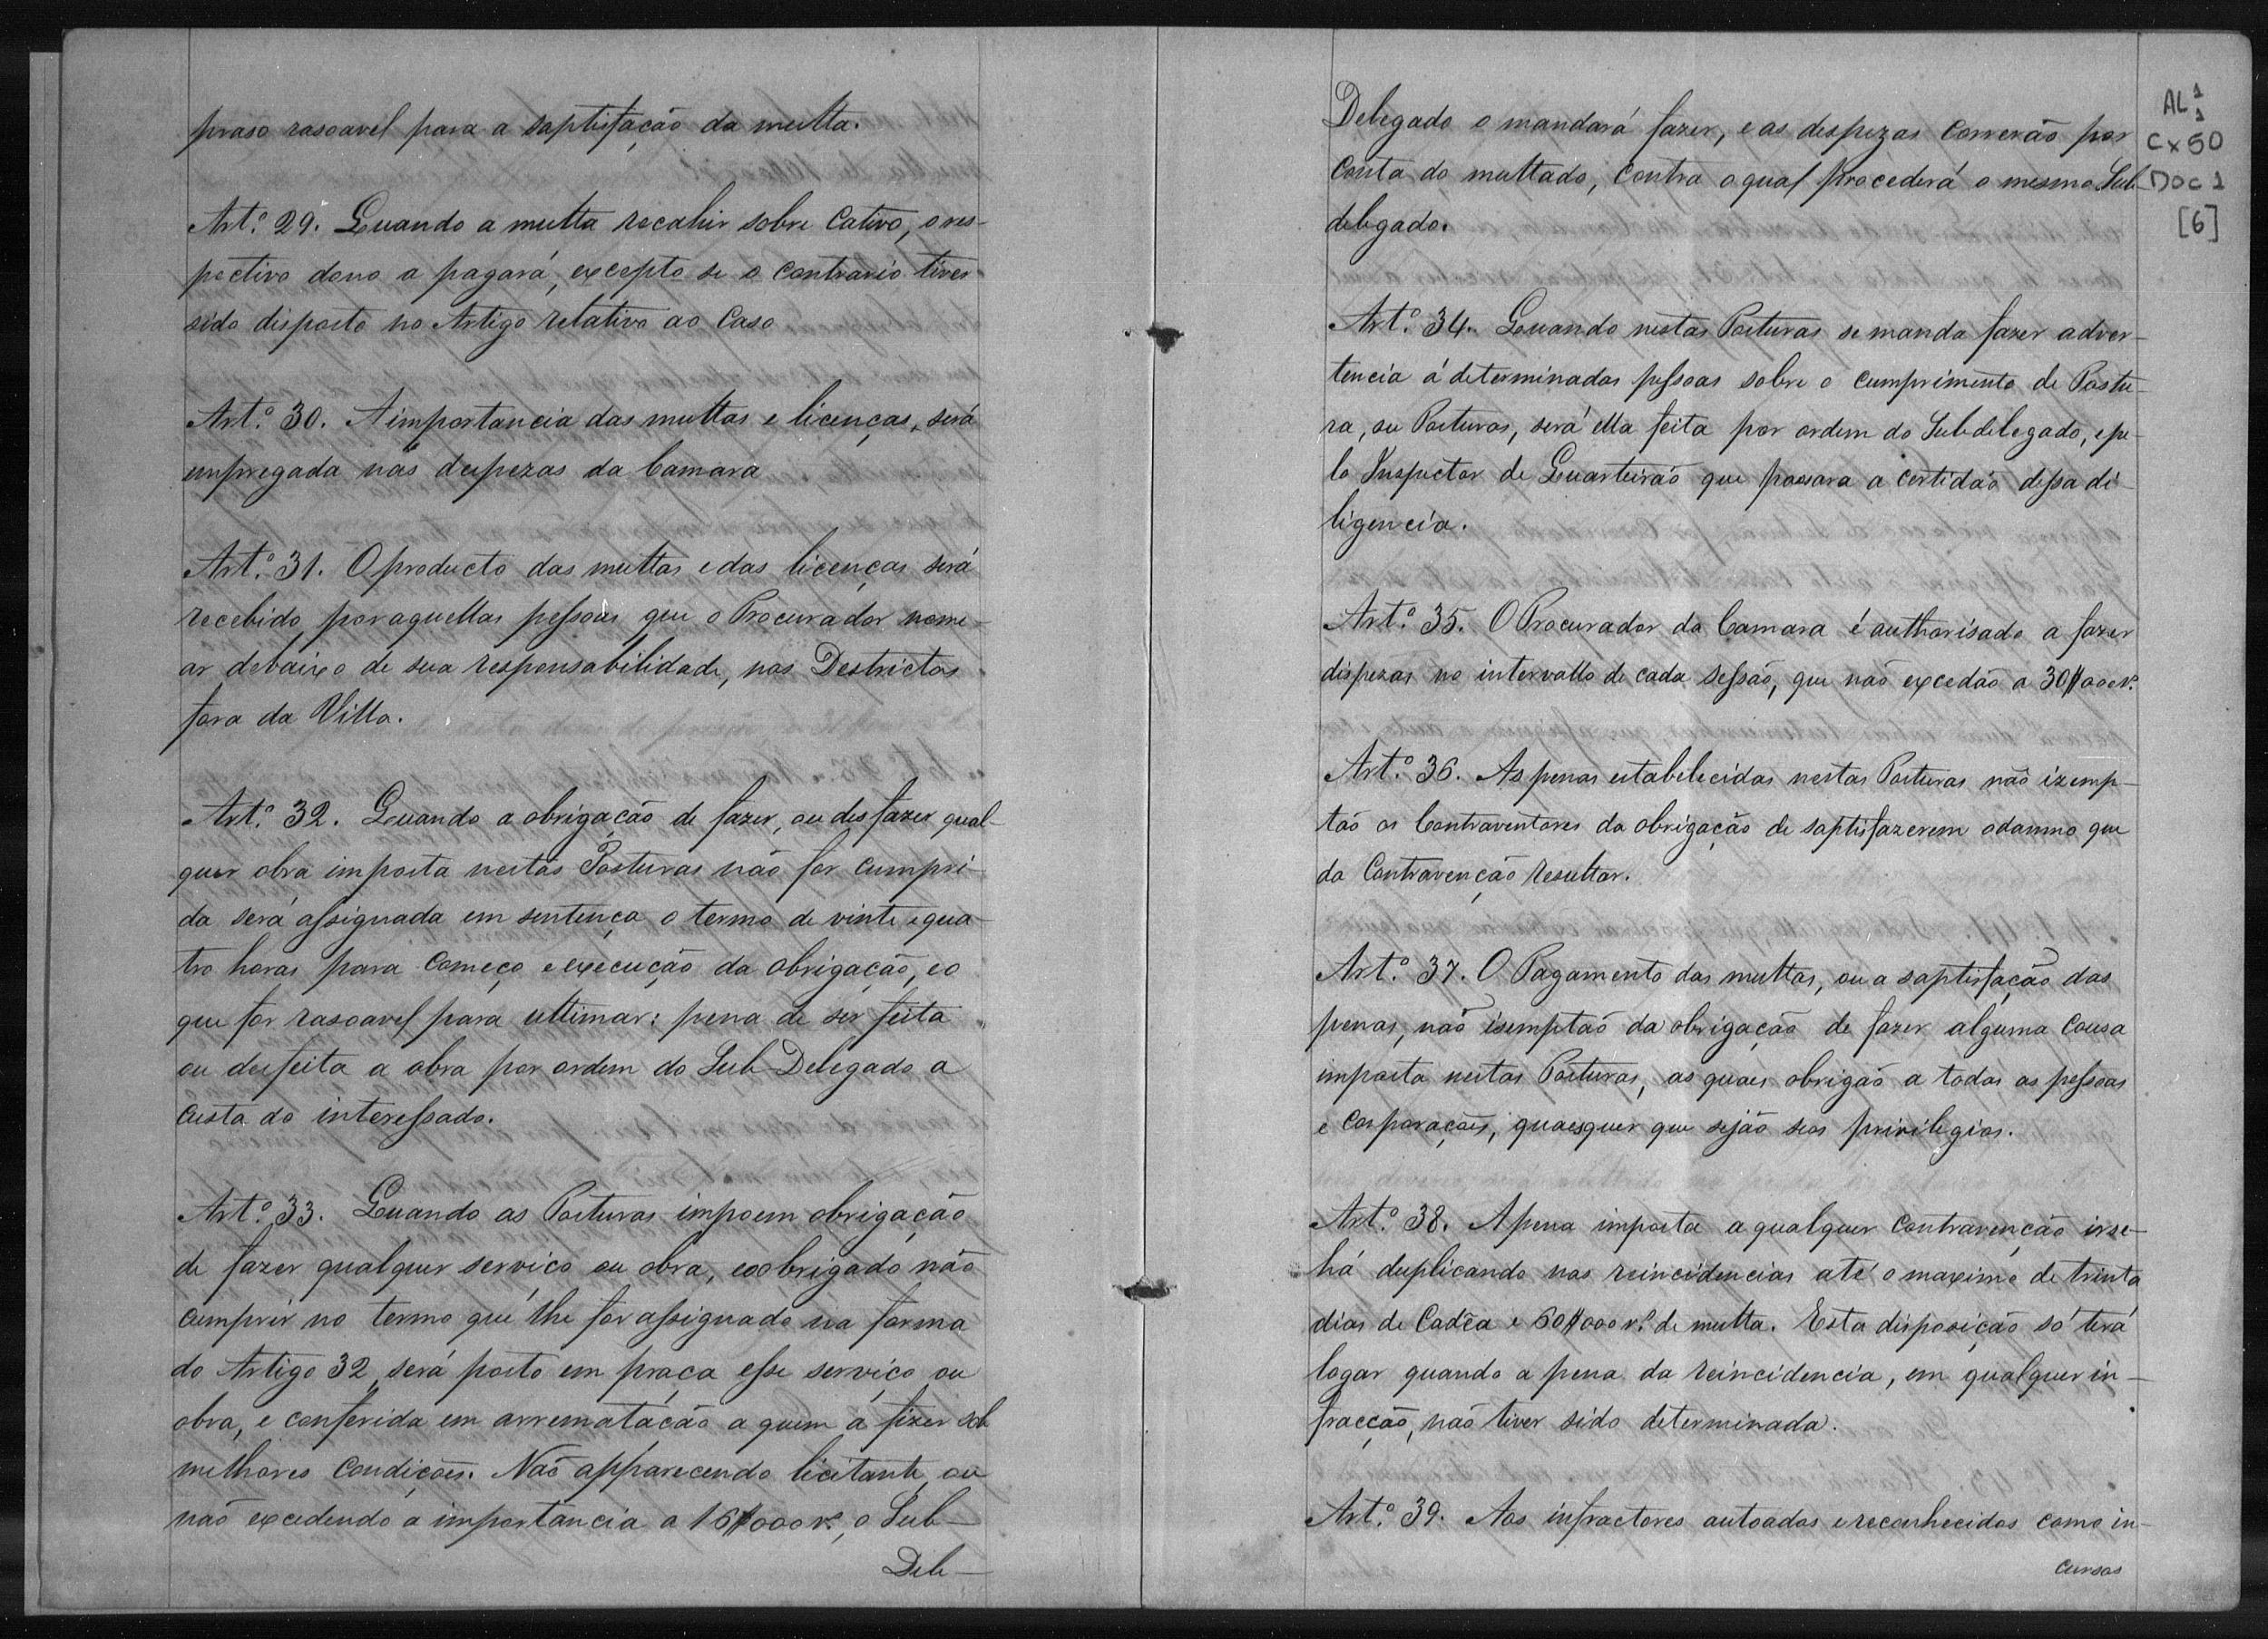 praso rasoavel para a saptisfação da multa.
Art.º 29. Quando a multa recahir sobre Cativo, o res-
pectivo dono a pagará, excepto se o contrario tiver
sido disposto no Artigo relativo ao Caso
Art.º 30. A importancia das multas e licenças, será
empregada nas despezas da Camara
Art.º 31. O producto das multas e das licenças será
recebido por aquellas pessoas que o Procurador nome-
ar debaixo de sua responsabilidade, nos Destrictos
fora da Villa.
Art.º 32. Quando a obrigação de fazer, ou desfazer qual-
quer obra imposta nestas Posturas não for cumpri-
da será assignada em sentença o termo de vinte e qua-
tro horas para começo e execução da obrigação, e o
que for rasoavel para ultimar: pena de ser feita
ou desfeita a obra por ordem do Sub-Delegado a
custa do interessado.
Art.º 33. Quando as Posturas impoem obrigação
de fazer qualquer serviço ou obra, e o obrigado não
cumprir no termo que lhe for assignado na forma
do Artigo 32, será posto em praça esse serviço ou
obra, e conferida em arrematação a quem a fizer sob
melhores condições. Não apparecendo licitante, ou
não excedendo a importancia a 16$000 rs, o Sub-
Dele-
Delegado o mandará fazer, e as despezas correrão por
conta do multado, contra o qual procederá o mesmo Sub-
delegado.
AL 1
1
Cx 50
Doc 1
[6]
Art.º 34. Quando nestas Posturas se manda fazer adver-
tencia á determinadas pessoas sobre o cumprimento de Postu-
ra, ou Posturas, será ella feita por ordem do Subdelegado, e pe-
lo Inspector de Quarteirão que passara a certidão dessa di-
ligencia.
Art.º 35. O Procurador da Camara é authorisado a fazer
dispezas no intervallo de cada sessão, que não excedão a 30$000 rs.
Art.º 36. As penas estabelecidas nestas Posturas não izemp-
tão os Contraventores da obrigação de saptisfazerem o damno que
da Contravenção resultar.
Art.º 37. O Pagamento das multas, ou a saptisfação das
penas, não isemptão da obrigação de fazer alguma cousa
imposta nestas Posturas, as quaes obrigão a todas as pessoas
e corporações, quaesquer que sejão seos privilegios.
Art.º 38. A pena imposta a qualquer contravenção irse-
há duplicando nas reincidencias até o maximo de trinta
dias de Cadêa e 60$000 rs. de multa. Esta disposição só terá
logar quando a pena da reincidencia, em qualquer in-
fracção, não tiver sido determinada.
Art.º 39. Aos infractores autoados e reconhecidos como in-
cursos